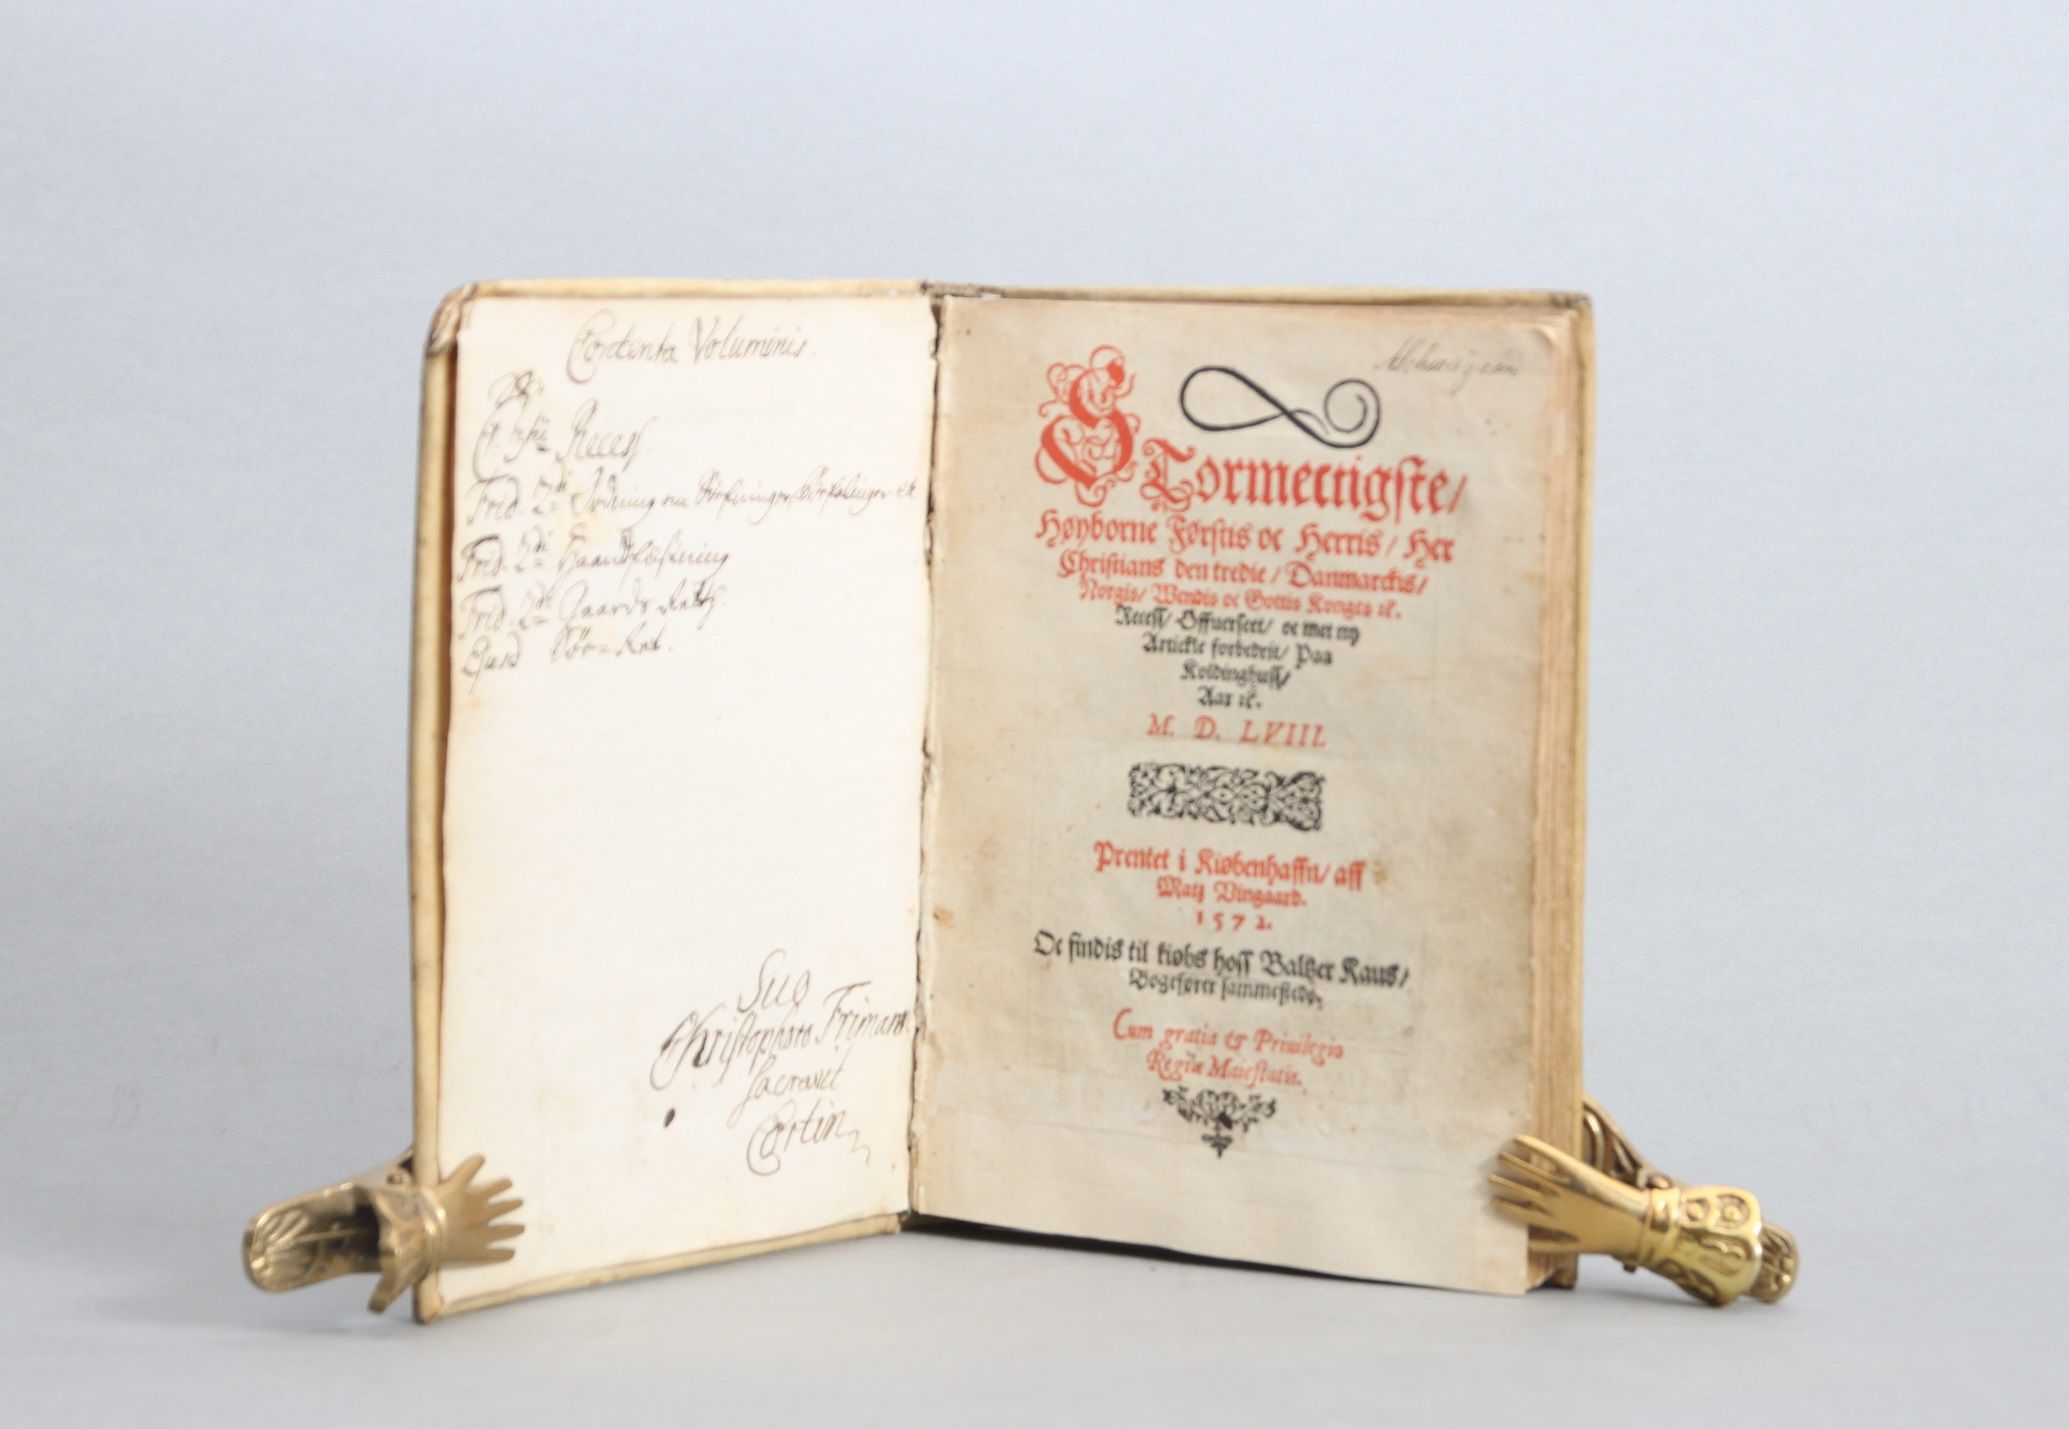 Contenta Voluminis.
Recess.
Frid. 2di Ordning om
Frid. 2di Haandfæstning
Frid. 2di Gaards Rett.
Ejusd Söe-Ret.
Suo
Christophoro
sacravit
Cortin
STormectigste/
Høyborne Førstis oc Herris/ Her
Christians den tredie/ Danmarckis/
Norgis/ Wendis oc Gottis Konges ꝛc.
Recess/ Offuerseet/ oc met ny
Artickle forbedrit/ Paa
Koldinghuss/
Aar ꝛc.
M. D. LVIII.
Prentet i Kiøbenhaffn/ aff
Matz Vingaard.
1572.
Oc findis til kiøbs hoss Baltzer Kaus/
Bogefører sammesteds.
Cum gratia & Priuilegio
Regiæ Maiestatis.